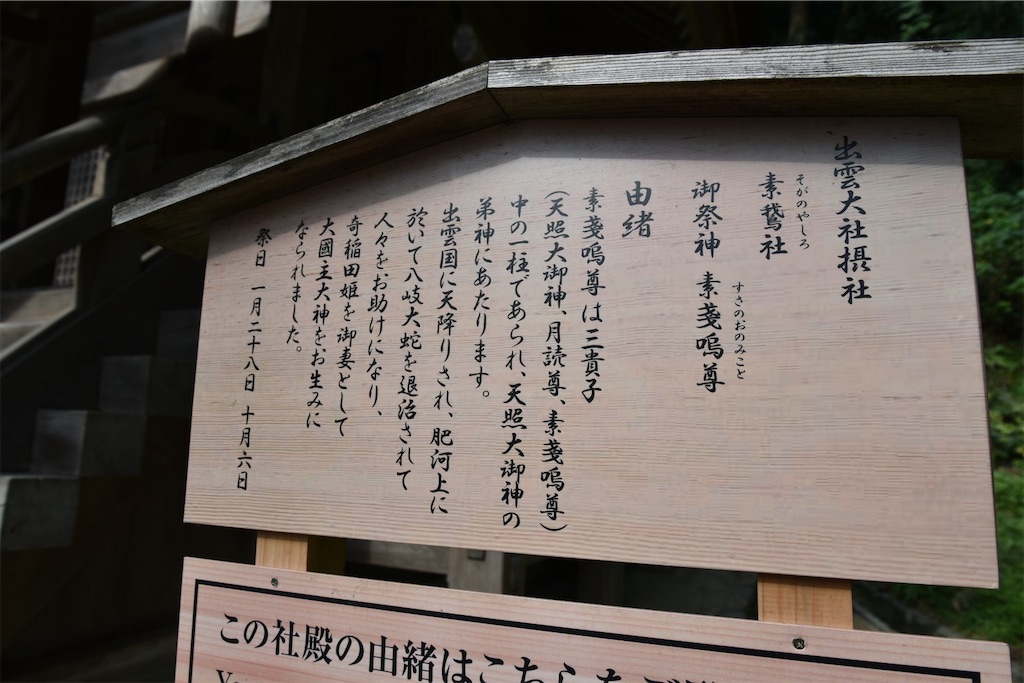 出雲大社摂社
そがのやしろ
素鵞社
すさのおのみこと
御祭神 素戔嗚尊
由緒
素戔嗚尊は三貴子
(天照大御神、月読尊、素戔嗚尊)
中の一柱であられ、天照大御神の
弟神にあたります。
出雲国に天降りされ、肥河上に
於いて八岐大蛇を退治されて
人々をお助けになり、
奇稲田姫を御妻として
大國主大神をお生みに
なられました。
祭日 一月二十八日 十月六日
この社殿の由緒はこちらを